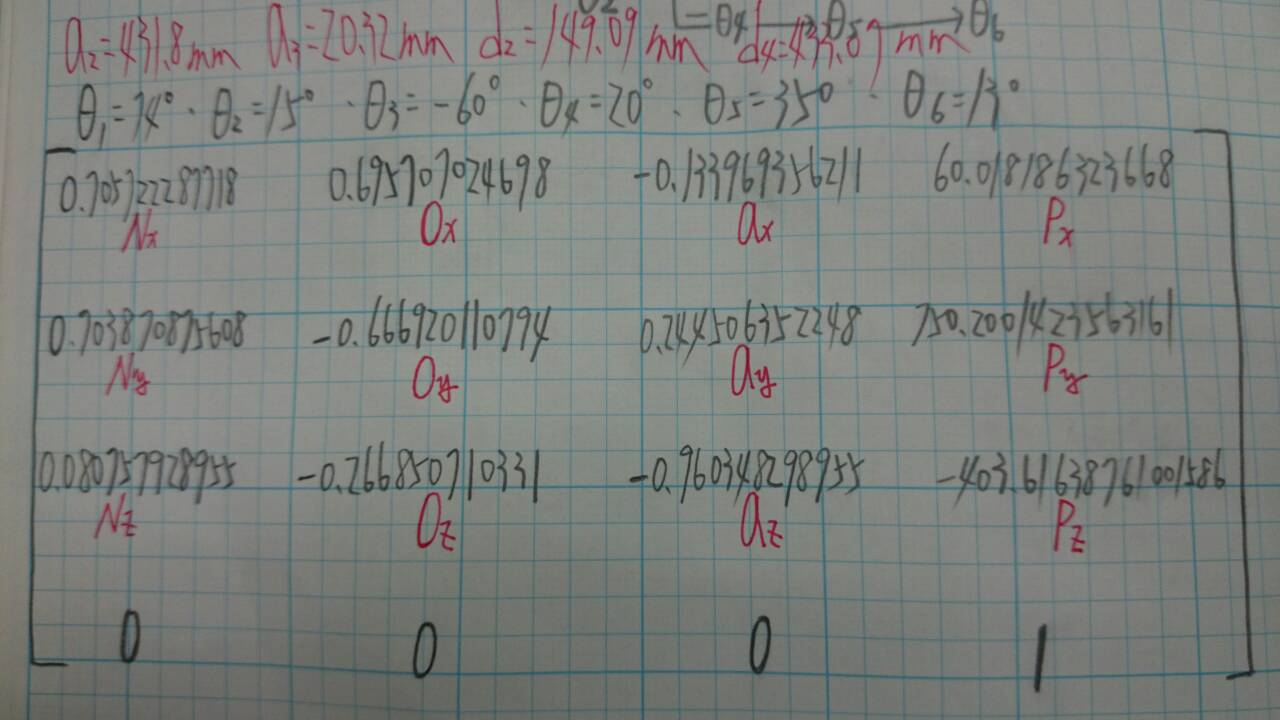 a₂=431.8mm a₃=20.32mm d₂=149.09mm d₄=433.07mm θ₄ θ₅ → θ₆
θ₁=74° · θ₂=15° · θ₃=-60° · θ₄=20° · θ₅=35° · θ₆=13°
0.705722287718 0.695707024698 -0.133969356211 60.018186323668
Nx Ox ax Px
0.703870875608 -0.666920110794 0.244506352248 750.2001423563161
Ny Oy ay Py
0.080757928955 -0.266850710331 -0.960348298955 -403.61638761001586
Nz Oz az Pz
0 0 0 1